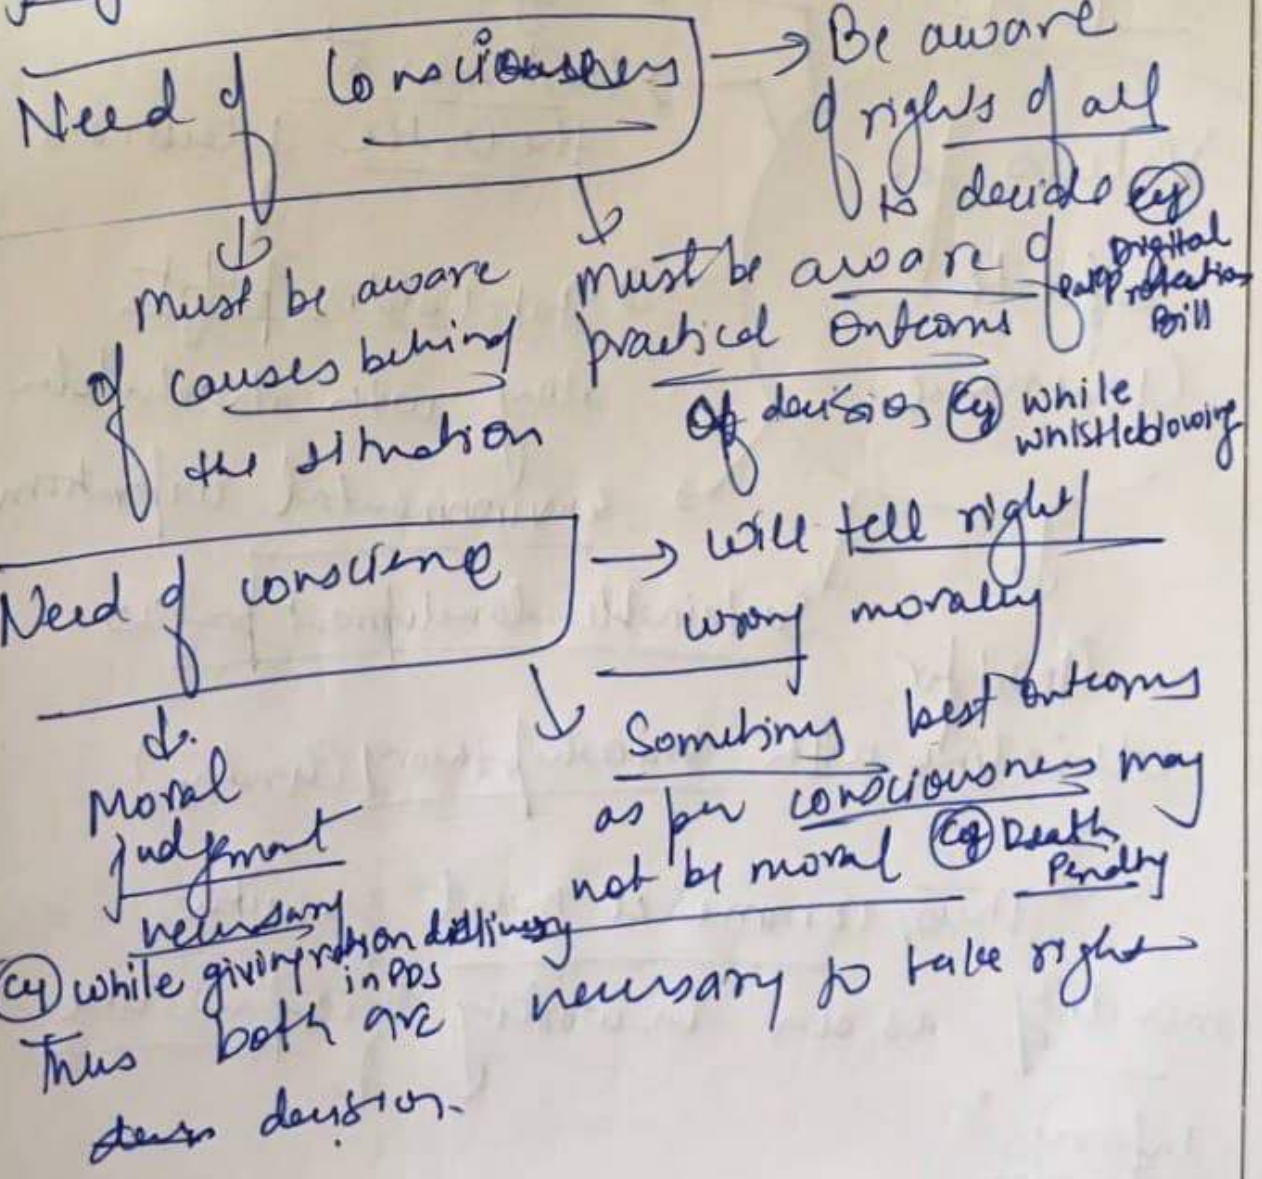 Need of Consciousness → Be aware
of rights of all
to decide eg
Digital
Data Protection
Bill
Must be aware
of causes behind
the situation
Must be aware of
practical outcoms
of decision eg while
whistleblowing
Need of conscience → Will tell right/
wrong morally
Moral
judgement
necessary
eg while giving ration delivery
in PDS
Sometimes best outcoms
as per consciousness may
not be moral eg Death
Penalty
Thus both are necessary to take right
decision.